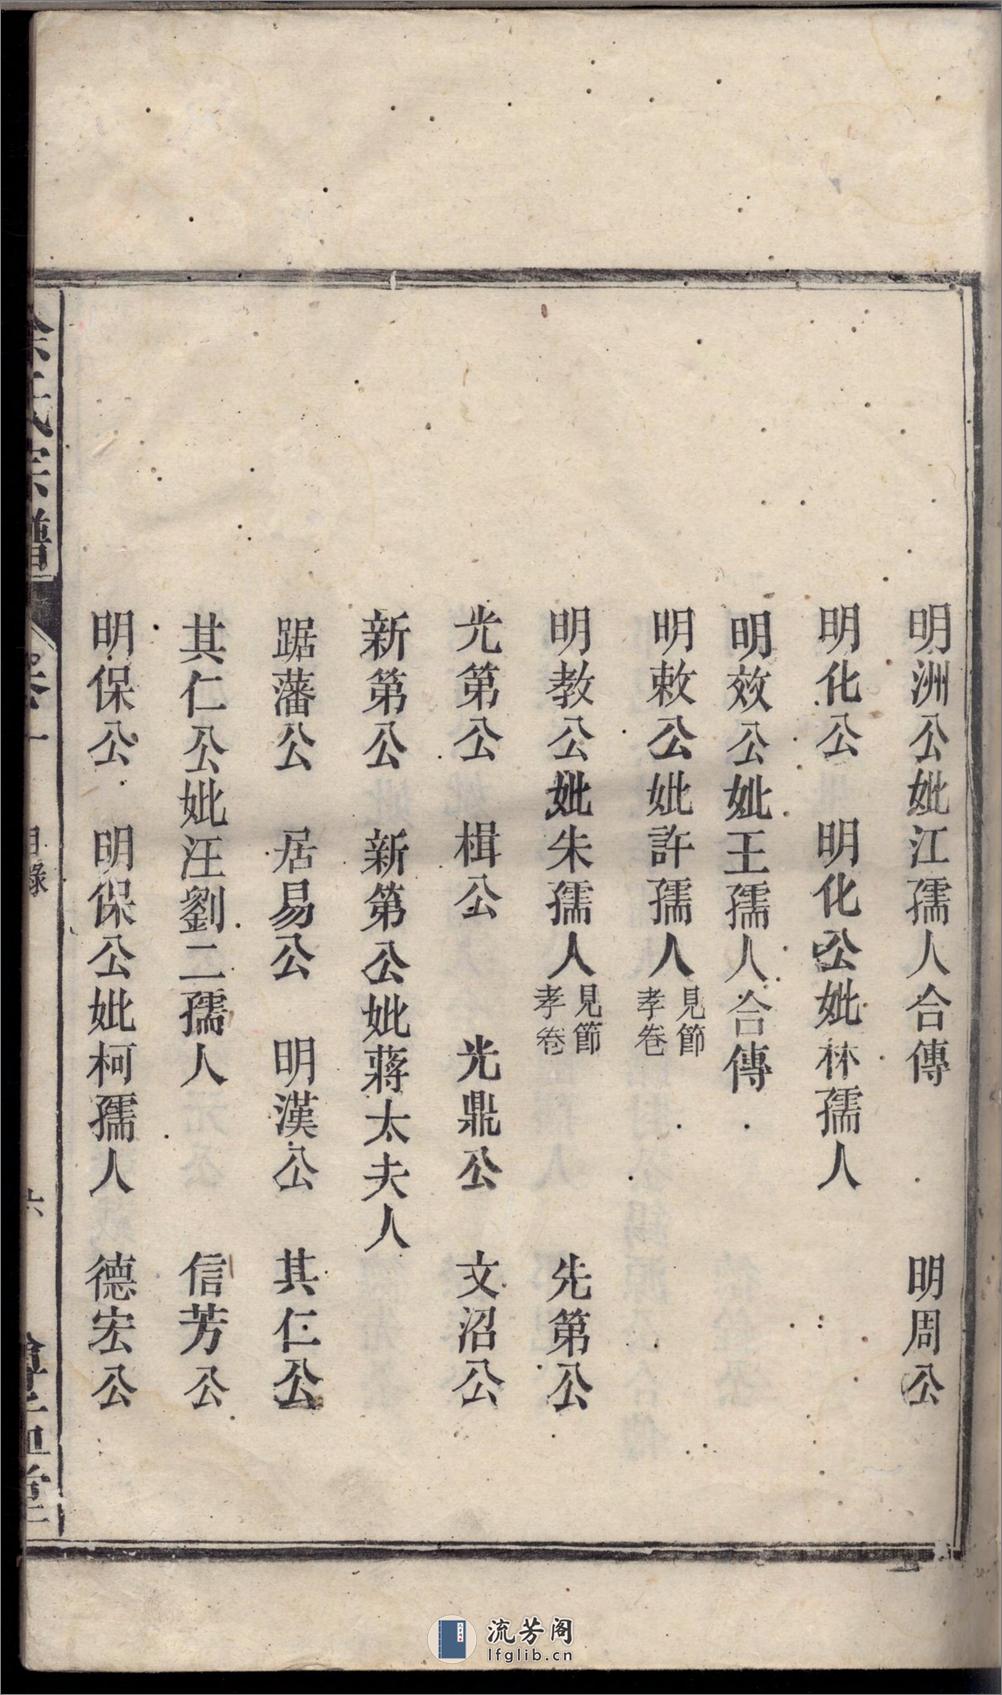 明洲公妣江孺人合傳　明周公
明化公　明化公妣林孺人
明效公妣王孺人合傳
明敕公妣許孺人見節孝卷
明教公妣朱孺人見節孝卷　先第公
光第公　楫公　光鼎公　文沼公
新第公　新第公妣蔣太夫人
踞藩公　居易公　明漢公　其仁公
其仁公妣汪劉二孺人　信芳公
明保公　明保公妣柯孺人　德宏公
余氏宗譜　卷一　目錄　六
流芳阁
lfglib.cn